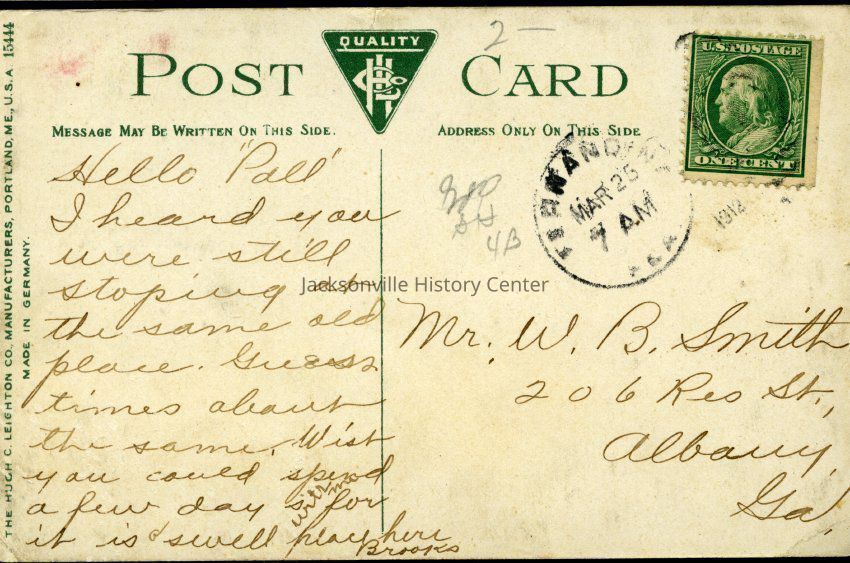 THE HUGH C. LEIGHTON CO., MANUFACTURERS, PORTLAND, ME., U.S.A. 15444
MADE IN GERMANY.
QUALITY
POST CARD
MESSAGE MAY BE WRITTEN ON THIS SIDE.
ADDRESS ONLY ON THIS SIDE
2 —
U.S. POSTAGE
ONE CENT
FERNANDINA
MAR 25
7 AM
FLA.
1912
4B
Hello "Pall"
I heard you
were still
stoping at
the same old
place. Guess
times about
the same. Wish
you could spend
a few days for
with me
it is a swell place here
Brooks
Mr. W. B. Smith
206 Res St,
Albany,
Ga.
Jacksonville History Center